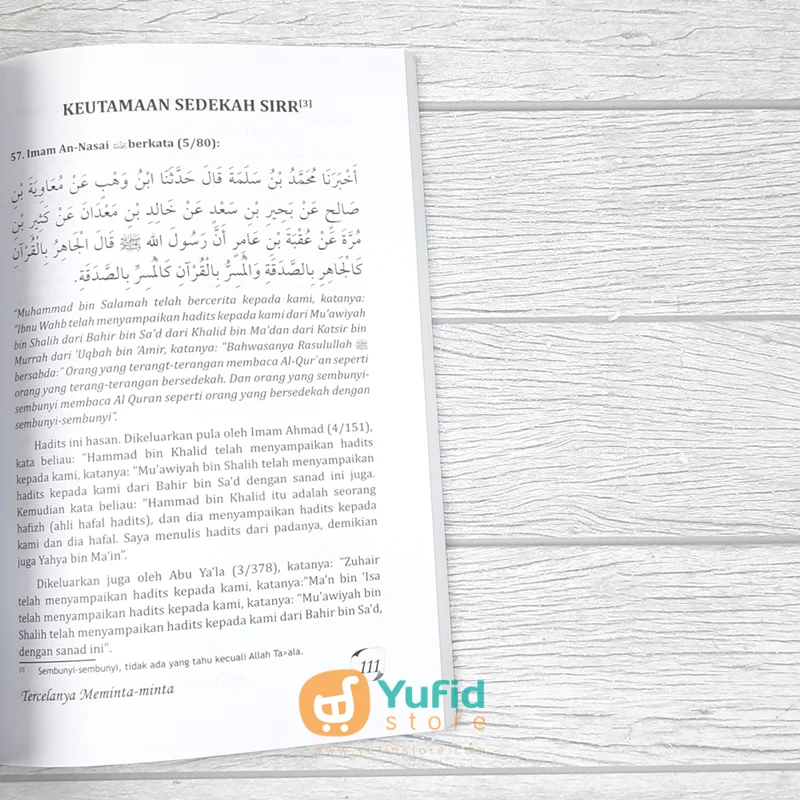 KEUTAMAAN SEDEKAH SIRR[3]
57. Imam An-Nasai berkata (5/80):
أَخْبَرَنَا مُحَمَّدُ بْنُ سَلَمَةَ قَالَ حَدَّثَنَا ابْنُ وَهْبٍ عَنْ مُعَاوِيَةَ بْنِ
صَالِحٍ عَنْ بَحِيرِ بْنِ سَعْدٍ عَنْ خَالِدِ بْنِ مَعْدَانَ عَنْ كَثِيرِ بْنِ
مُرَّةَ عَنْ عُقْبَةَ بْنِ عَامِرٍ أَنَّ رَسُولَ اللهِ ﷺ قَالَ الْجَاهِرُ بِالْقُرْآنِ
كَالْجَاهِرِ بِالصَّدَقَةِ وَالْمُسِرُّ بِالْقُرْآنِ كَالْمُسِرِّ بِالصَّدَقَةِ.
"Muhammad bin Salamah telah bercerita kepada kami, katanya:
"Ibnu Wahb telah menyampaikan hadits kepada kami dari Mu'awiyah
bin Shalih dari Bahir bin Sa'd dari Khalid bin Ma'dan dari Katsir bin
Murrah dari 'Uqbah bin 'Amir, katanya: "Bahwasanya Rasulullah ﷺ
bersabda:" Orang yang terangt-terangan membaca Al-Qur`an seperti
orang yang terang-terangan bersedekah. Dan orang yang sembunyi-
sembunyi membaca Al Quran seperti orang yang bersedekah dengan
sembunyi-sembunyi".
Hadits ini hasan. Dikeluarkan pula oleh Imam Ahmad (4/151),
kata beliau: "Hammad bin Khalid telah menyampaikan hadits
kepada kami, katanya: "Mu'awiyah bin Shalih telah menyampaikan
hadits kepada kami dari Bahir bin Sa'd dengan sanad ini juga.
Kemudian kata beliau: "Hammad bin Khalid itu adalah seorang
hafizh (ahli hafal hadits), dan dia menyampaikan hadits kepada
kami dan dia hafal. Saya menulis hadits dari padanya, demikian
juga Yahya bin Ma'in".
Dikeluarkan juga oleh Abu Ya'la (3/378), katanya: "Zuhair
telah menyampaikan hadits kepada kami, katanya:"Ma'n bin 'Isa
telah menyampaikan hadits kepada kami, katanya: "Mu'awiyah bin
Shalih telah menyampaikan hadits kepada kami dari Bahir bin Sa'd,
dengan sanad ini".
[3] Sembunyi-sembunyi, tidak ada yang tahu kecuali Allah Ta>ala.
111
Tercelanya Meminta-minta
Yufid
store
www.yufidstore.com